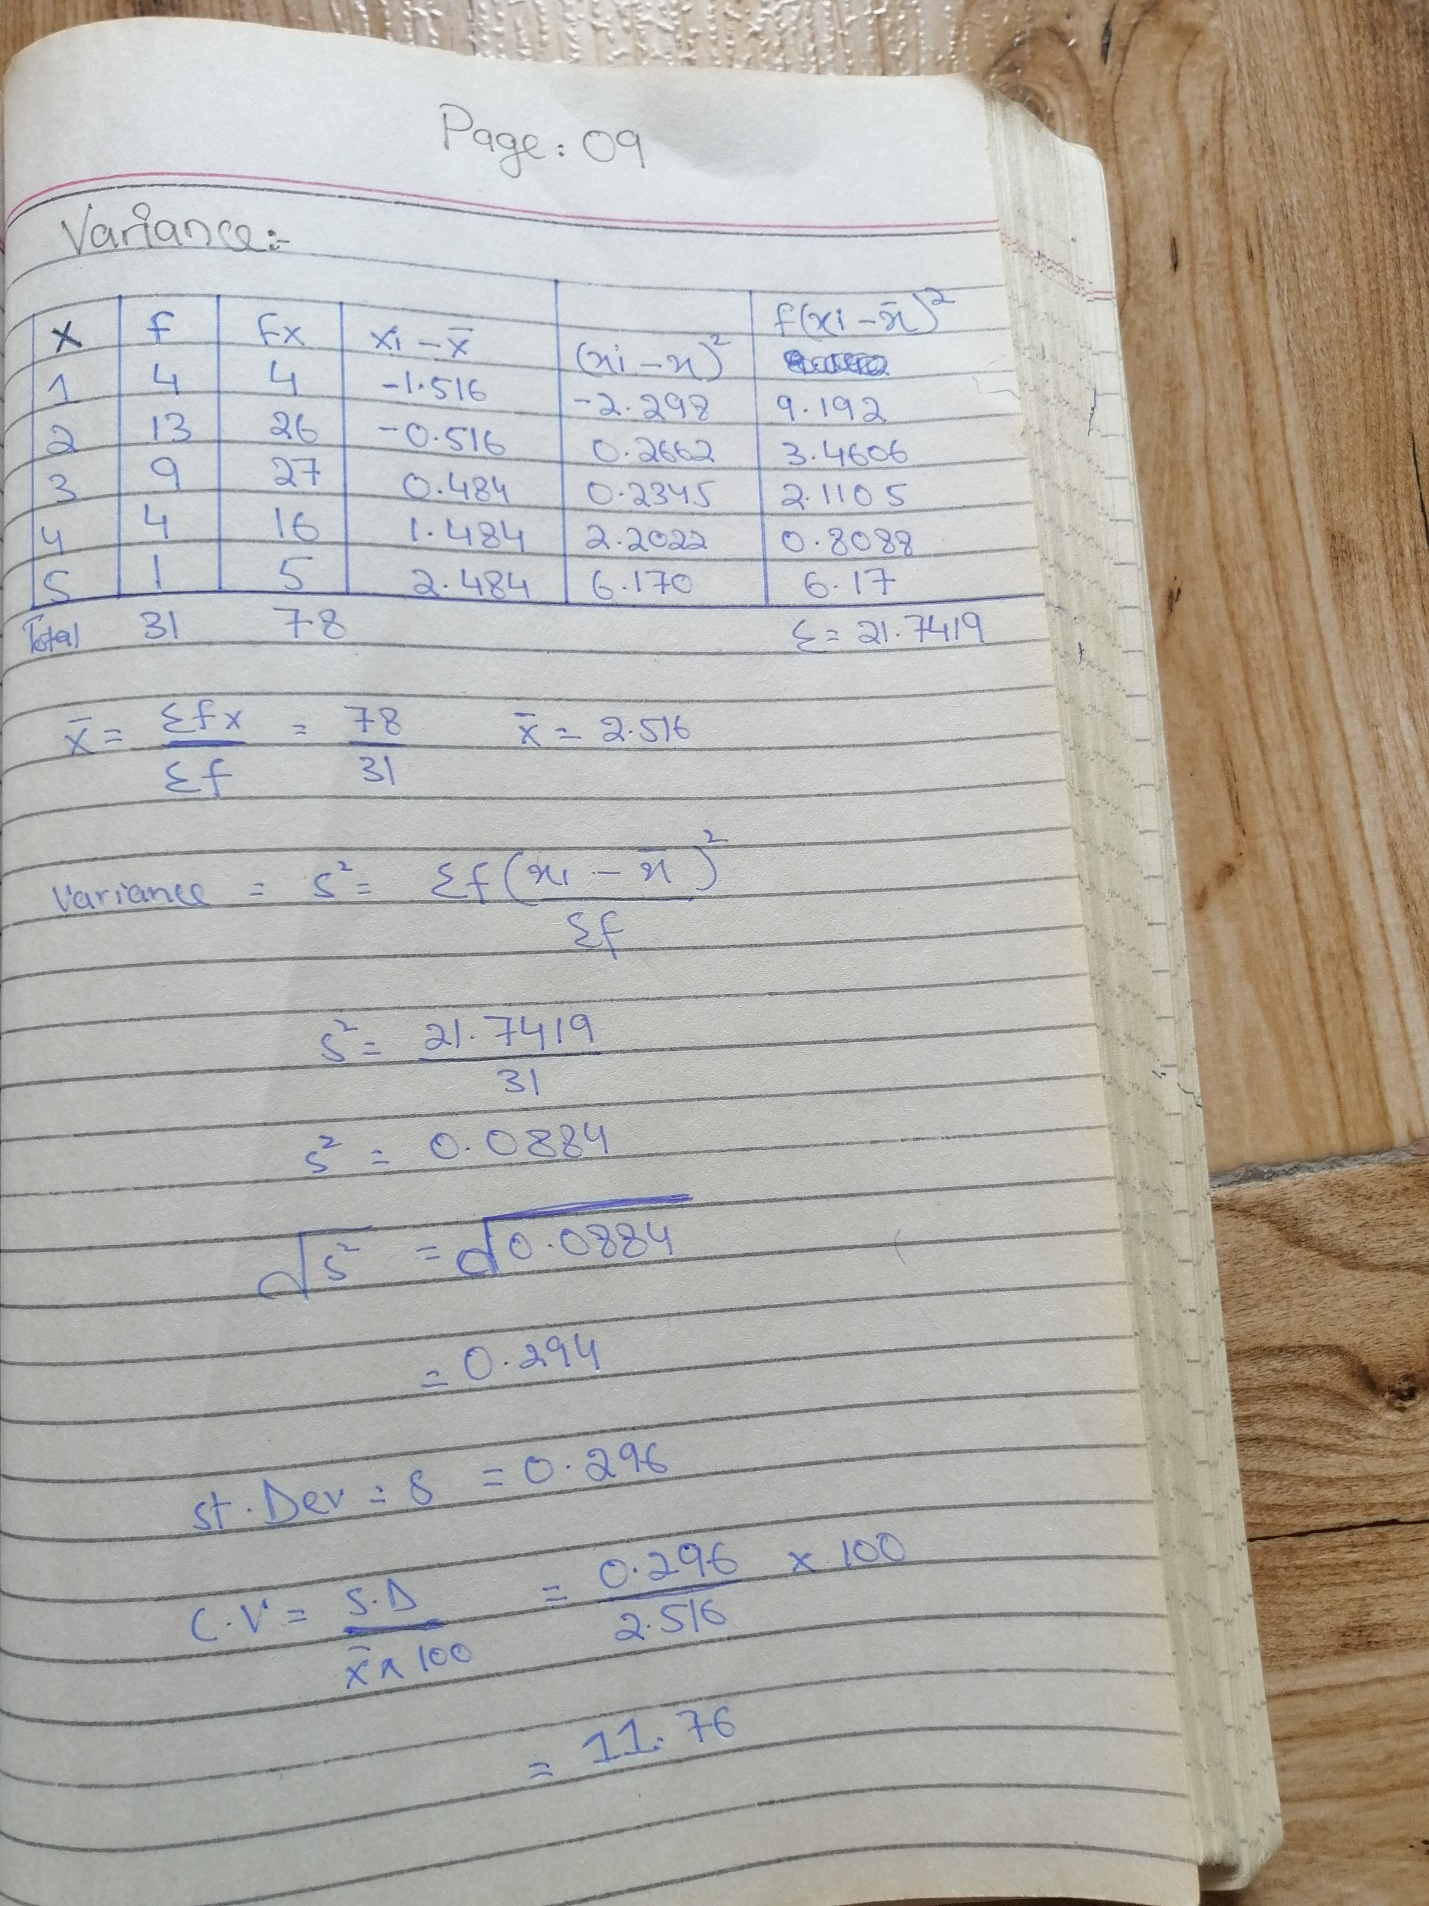 Page: 09
Variance:-
x f fx xi - x̄ (xi - x)² f(xi - x̄)²
1 4 4 -1.516 -2.298 9.192
2 13 26 -0.516 0.2662 3.4606
3 9 27 0.484 0.2345 2.1105
4 4 16 1.484 2.2022 0.8088
5 1 5 2.484 6.170 6.17
Total 31 78 Σ= 21.7419
x̄ = Σfx / Σf = 78 / 31 x̄ = 2.516
Variance = s² = Σf(xi - x̄)² / Σf
s² = 21.7419 / 31
s² = 0.0884
√s² = √0.0884
= 0.294
st. Dev = s = 0.296
C.V = S.D / x̄ x 100 = 0.296 / 2.516 x 100
= 11.76